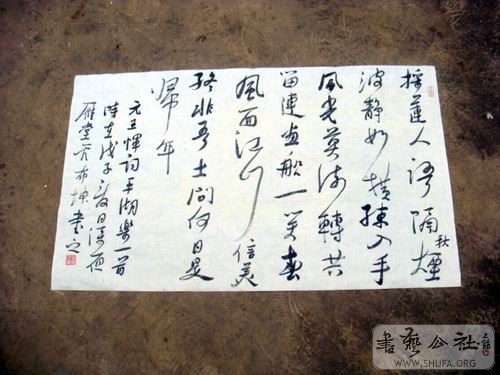 採蓮人語隔秋煙
波靜如横練入手
風光莫流轉共
留連畫船一笑春
風面江山信美
終非吾土問何日是
歸年
元王惲詞平湖樂一首
時在戊子夏日深夜
雁堂布坤書之
書藝公社
WWW.SHUFA.ORG